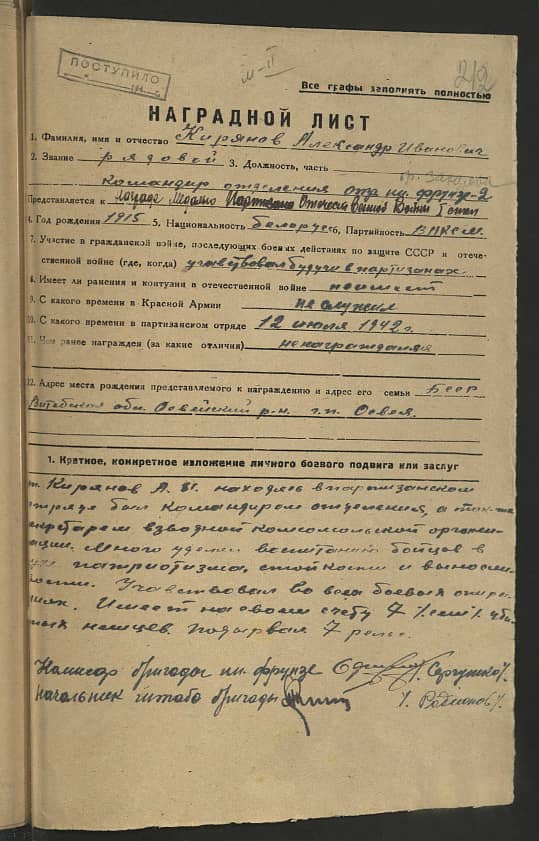 ПОСТУПИЛО
212
Все графы заполнять полностью
НАГРАДНОЙ ЛИСТ
1. Фамилия, имя и отчество Кирянов Александр Иванович
2. Звание рядовой 3. Должность, часть
командир отделения отр. им. Фрунзе-2
Представляется к Медалью Партизана Отечеств Войны I степ
4. Год рождения 1915 5. Национальность белорус 6. Партийность ВЛКСМ
7. Участие в гражданской войне, последующих боевых действиях по защите СССР и отече-
ственной войне (где, когда) участвовал будучи в партизанах.
8. Имеет ли ранения и контузии в отечественной войне не имеет
9. С какого времени в Красной Армии не служил
10. С какого времени в партизанском отряде 12 июля 1942 г.
11. Чем ранее награжден (за какие отличия) не награждался
12. Адрес места рождения представляемого к награждению и адрес его семьи БССР
Витебская обл. Освейский р-н. г.п. Освея.
1. Краткое, конкретное изложение личного боевого подвига или заслуг
т. Кирянов А. И. находясь в партизанском
отряде был командиром отделения, а также
секретарем взводной комсомольской органи-
зации. Много уделял воспитанию бойцов в
духе патриотизма, стойкости и выносли-
вости. Участвовал во всех боевых опера-
циях. Имеет на своем счету 7 (семь) уби-
тых немцев. подырвал 7 рельс.
Комисар бригады им. Фрунзе
Начальник штаба бригады /Родионов/.